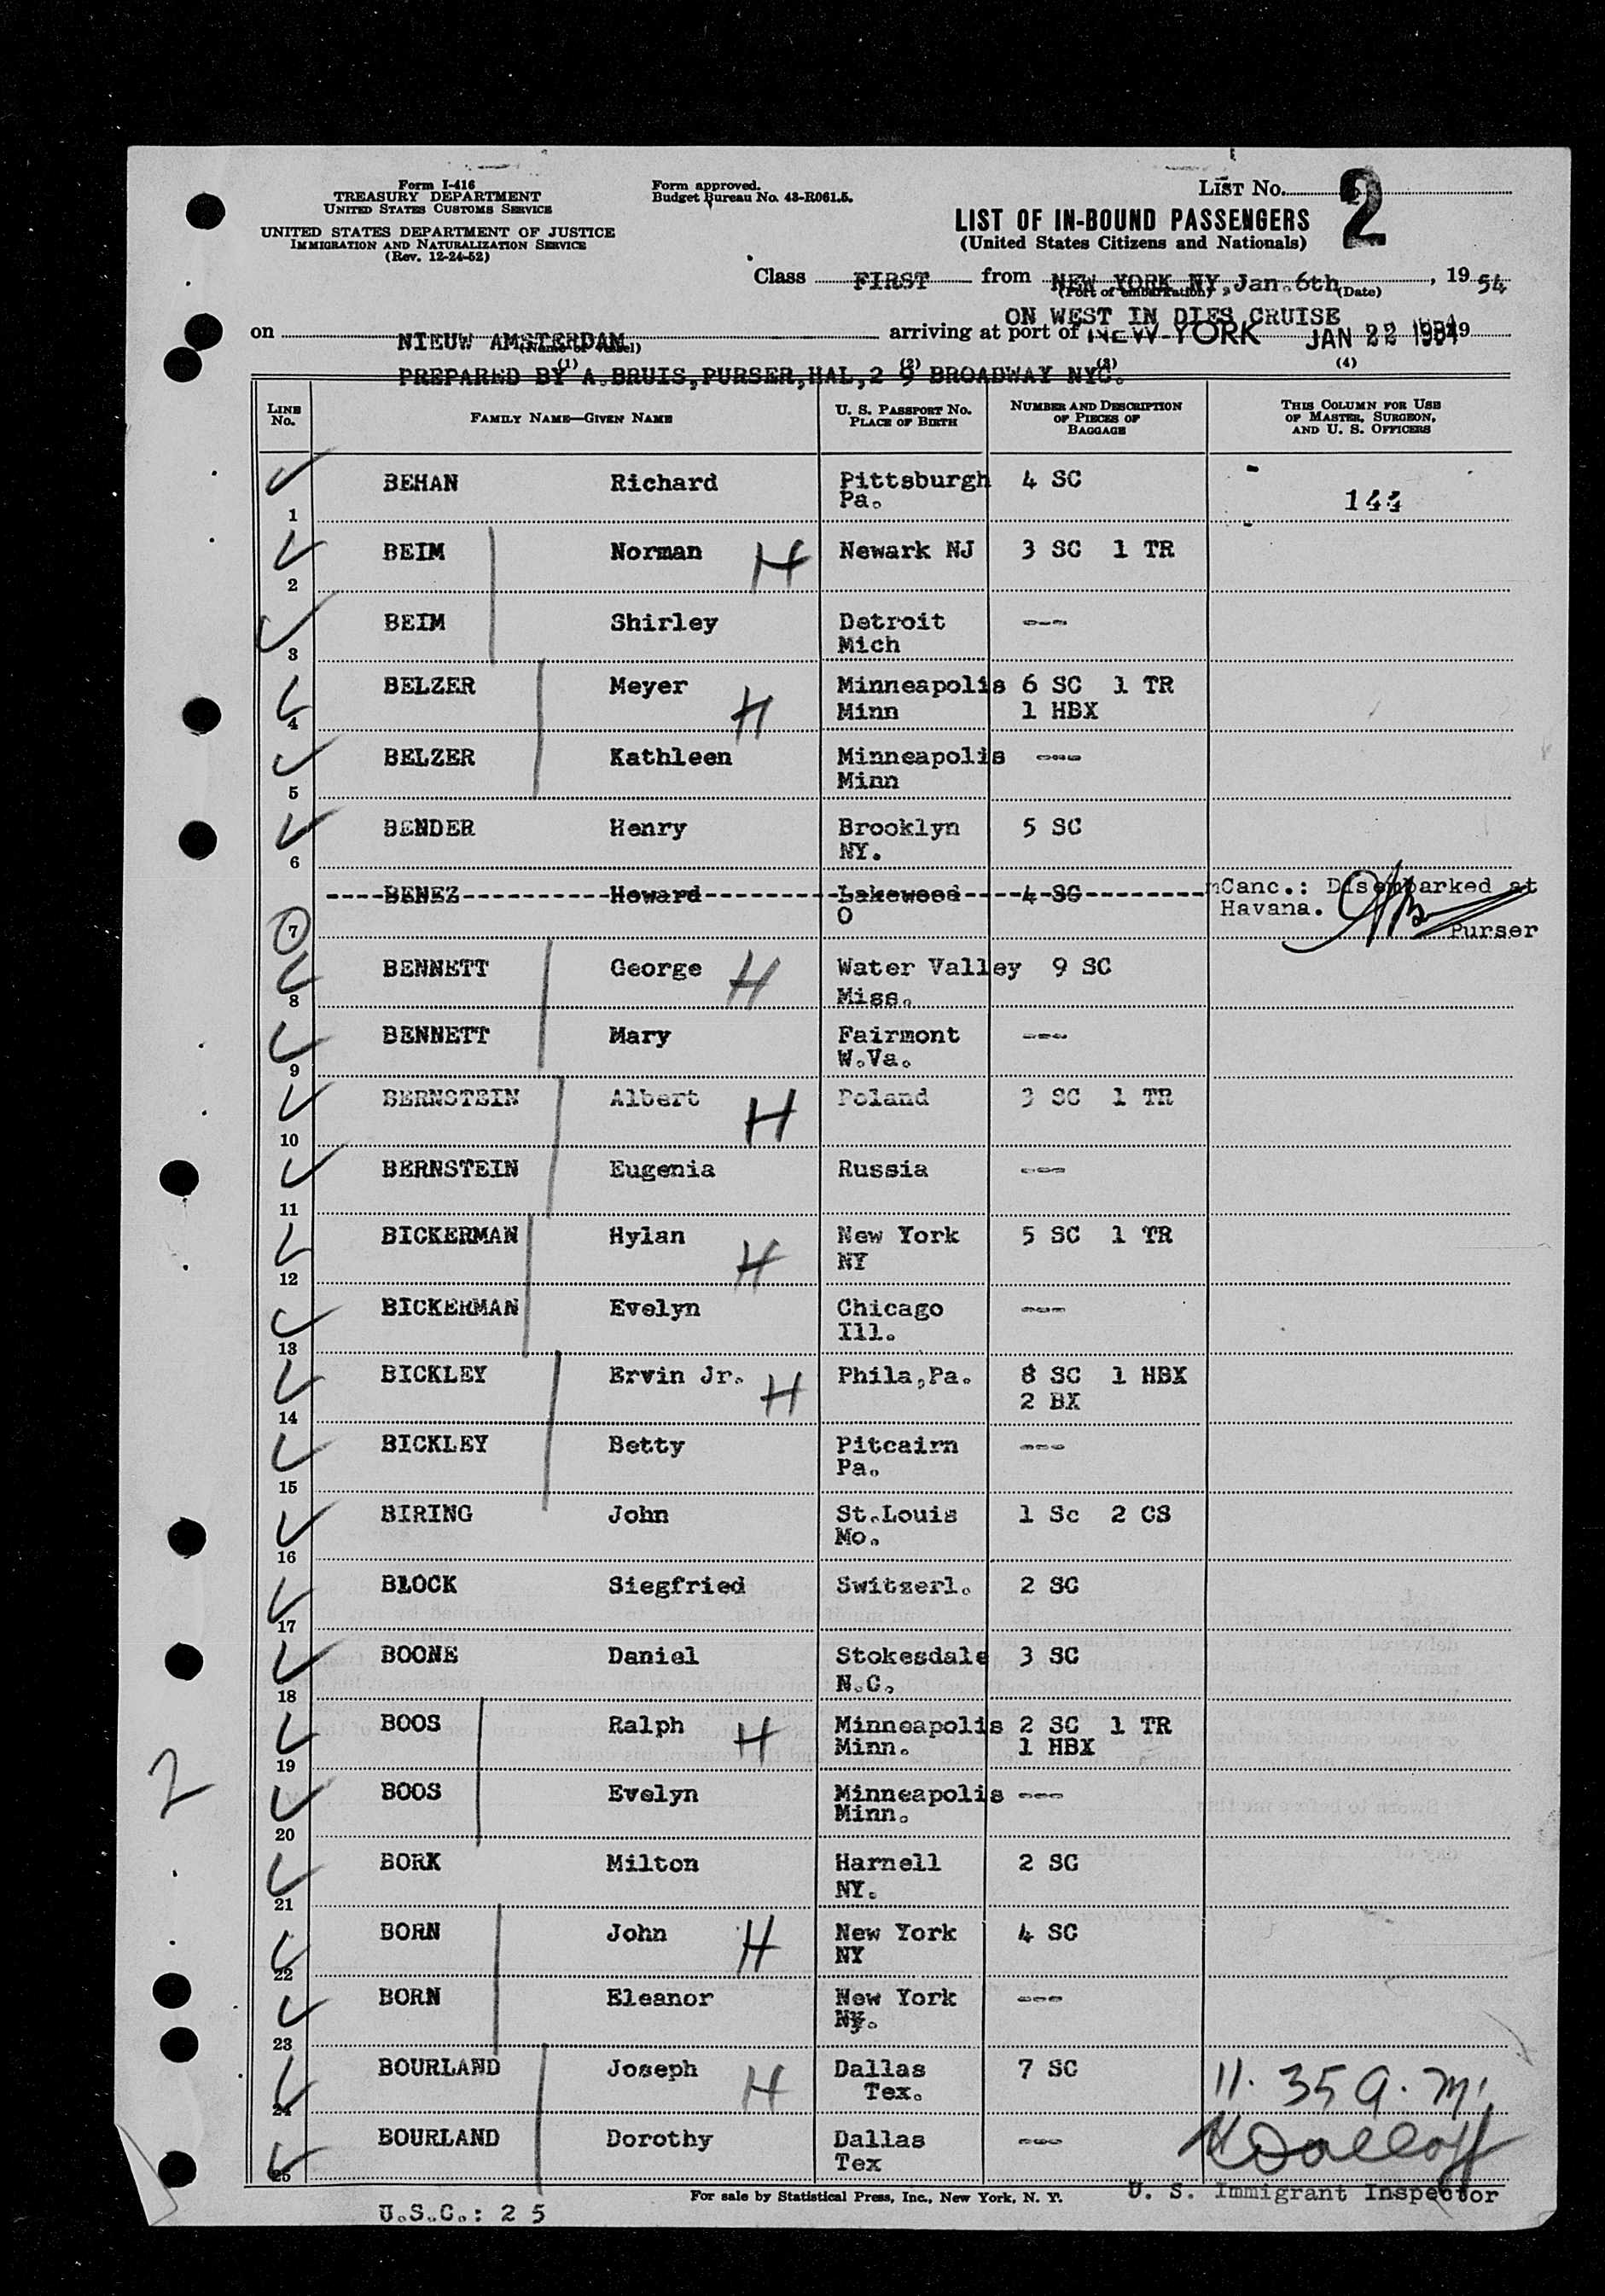 Form I-416
TREASURY DEPARTMENT
UNITED STATES CUSTOMS SERVICE
UNITED STATES DEPARTMENT OF JUSTICE
IMMIGRATION AND NATURALIZATION SERVICE
(Rev. 12-24-52)
Form approved.
Budget Bureau No. 43-R061.5.
LIST NO. 2
LIST OF IN-BOUND PASSENGERS
(United States Citizens and Nationals)
Class FIRST from NEW YORK NY, Jan. 6th, 1954
(Port of embarkation) (Date)
ON WEST IN DIES CRUISE
on NIEUW AMSTERDAM arriving at port of NEW YORK JAN 22 1954 19
(Name of vessel)
(1) (2) (3) (4)
PREPARED BY A.BRUIS,PURSER,HAL,2 9 BROADWAY NYC.
LINE No. FAMILY NAME—GIVEN NAME U. S. PASSPORT NO. PLACE OF BIRTH NUMBER AND DESCRIPTION OF PIECES OF BAGGAGE THIS COLUMN FOR USE OF MASTER, SURGEON, AND U. S. OFFICERS
1 BEHAN Richard Pittsburgh Pa. 4 SC 144
2 BEIM Norman H Newark NJ 3 SC 1 TR
3 BEIM Shirley Detroit Mich ---
4 BELZER Meyer H Minneapolis Minn 6 SC 1 TR 1 HBX
5 BELZER Kathleen Minneapolis Minn ---
6 BENDER Henry Brooklyn NY. 5 SC
7 BENEZ Howard Lakewood O 4 SC Canc.: Disembarked at Havana. Purser
8 BENNETT George H Water Valley Miss. 9 SC
9 BENNETT Mary Fairmont W.Va. ---
10 BERNSTEIN Albert H Poland 3 SC 1 TR
11 BERNSTEIN Eugenia Russia ---
12 BICKERMAN Hylan H New York NY 5 SC 1 TR
13 BICKERMAN Evelyn Chicago Ill. ---
14 BICKLEY Ervin Jr. H Phila,Pa. 8 SC 1 HBX 2 BX
15 BICKLEY Betty Pitcairn Pa. ---
16 BIRING John St.Louis Mo. 1 Sc 2 CS
17 BLOCK Siegfried Switzerl. 2 SC
18 BOONE Daniel Stokesdale N.C. 3 SC
19 BOOS Ralph H Minneapolis Minn. 2 SC 1 TR 1 HBX
2
20 BOOS Evelyn Minneapolis Minn. ---
21 BORK Milton Harnell NY. 2 SC
22 BORN John H New York NY 4 SC
23 BORN Eleanor New York Ny. ---
24 BOURLAND Joseph H Dallas Tex. 7 SC 11.35 a.m.
25 BOURLAND Dorothy Dallas Tex ---
For sale by Statistical Press, Inc., New York, N. Y.
U. S. Immigrant Inspector
U.S.C.: 2 5